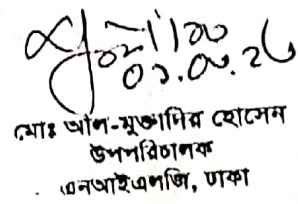 ০১.০৮.২৬
মোঃ আল-মুজাদির হোসেন
উপপরিচালক
এনআইএলজি, ঢাকা